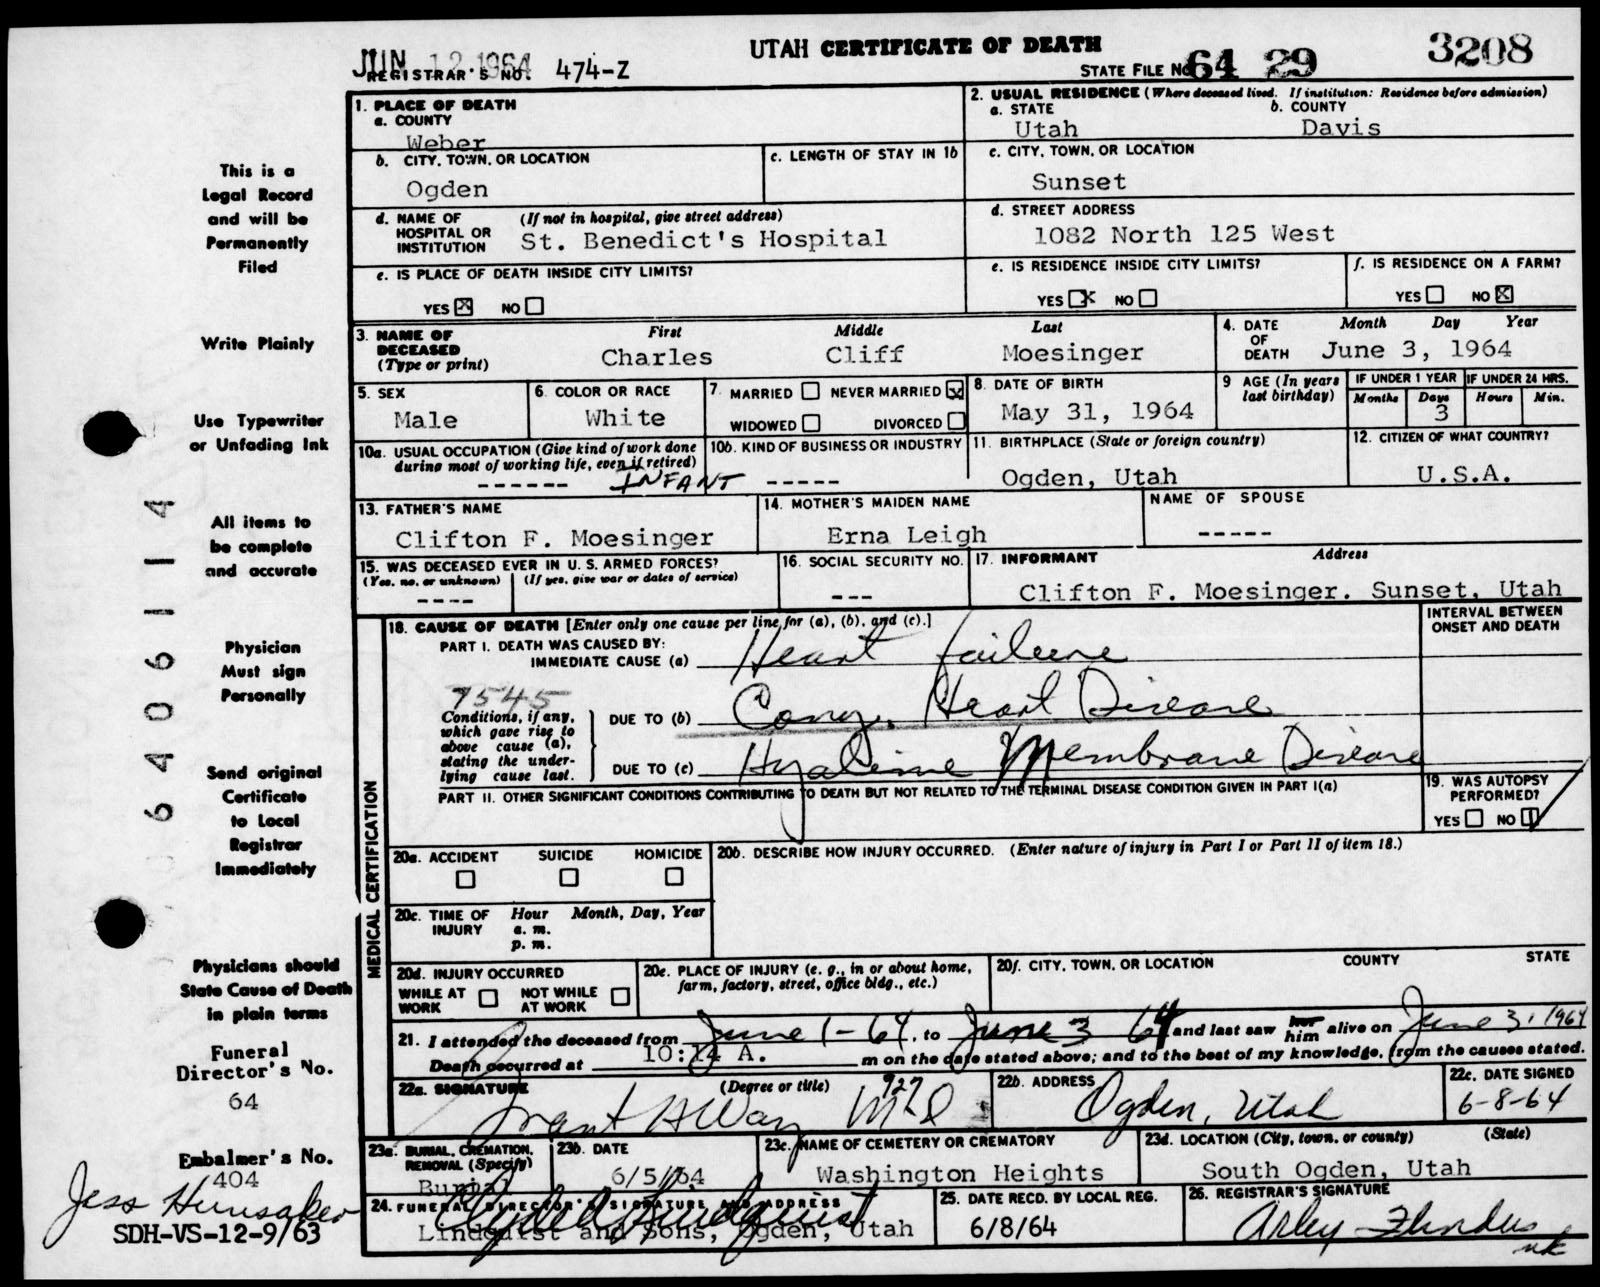 UTAH CERTIFICATE OF DEATH
JUN 12 1964
REGISTRAR'S NO. 474-Z
STATE FILE NO. 64 29 3208
1. PLACE OF DEATH
a. COUNTY
Weber
2. USUAL RESIDENCE (Where deceased lived. If institution: Residence before admission)
a. STATE b. COUNTY
Utah Davis
b. CITY, TOWN, OR LOCATION
Ogden
c. LENGTH OF STAY IN 1b
c. CITY, TOWN, OR LOCATION
Sunset
d. NAME OF HOSPITAL OR INSTITUTION (If not in hospital, give street address)
St. Benedict's Hospital
d. STREET ADDRESS
1082 North 125 West
e. IS PLACE OF DEATH INSIDE CITY LIMITS?
YES X NO
e. IS RESIDENCE INSIDE CITY LIMITS?
YES X NO
f. IS RESIDENCE ON A FARM?
YES NO X
3. NAME OF DECEASED (Type or print)
First Middle Last
Charles Cliff Moesinger
4. DATE OF DEATH
Month Day Year
June 3, 1964
5. SEX
Male
6. COLOR OR RACE
White
7. MARRIED NEVER MARRIED X
WIDOWED DIVORCED
8. DATE OF BIRTH
May 31, 1964
9 AGE (In years last birthday)
IF UNDER 1 YEAR IF UNDER 24 HRS.
Months Days Hours Min.
3
10a. USUAL OCCUPATION (Give kind of work done during most of working life, even if retired)
------ INFANT
10b. KIND OF BUSINESS OR INDUSTRY
-----
11. BIRTHPLACE (State or foreign country)
Ogden, Utah
12. CITIZEN OF WHAT COUNTRY?
U.S.A.
13. FATHER'S NAME
Clifton F. Moesinger
14. MOTHER'S MAIDEN NAME
Erna Leigh
NAME OF SPOUSE
-----
15. WAS DECEASED EVER IN U. S. ARMED FORCES?
(Yes, no, or unknown) (If yes, give war or dates of service)
----
16. SOCIAL SECURITY NO.
---
17. INFORMANT Address
Clifton F. Moesinger. Sunset, Utah
MEDICAL CERTIFICATION
18. CAUSE OF DEATH [Enter only one cause per line for (a), (b), and (c).]
INTERVAL BETWEEN ONSET AND DEATH
PART I. DEATH WAS CAUSED BY:
IMMEDIATE CAUSE (a) Heart failure
7545
Conditions, if any, which gave rise to above cause (a), stating the underlying cause last.
DUE TO (b) Cong. Heart Disease
DUE TO (c) Hyaline Membrane Disease
PART II. OTHER SIGNIFICANT CONDITIONS CONTRIBUTING TO DEATH BUT NOT RELATED TO THE TERMINAL DISEASE CONDITION GIVEN IN PART I(a)
19. WAS AUTOPSY PERFORMED?
YES NO
20a. ACCIDENT SUICIDE HOMICIDE
20b. DESCRIBE HOW INJURY OCCURRED. (Enter nature of injury in Part I or Part II of item 18.)
20c. TIME OF INJURY Hour Month, Day, Year
a. m.
p. m.
20d. INJURY OCCURRED
WHILE AT WORK NOT WHILE AT WORK
20e. PLACE OF INJURY (e. g., in or about home, farm, factory, street, office bldg., etc.)
20f. CITY, TOWN, OR LOCATION COUNTY STATE
21. I attended the deceased from June 1-64, to June 3 64 and last saw her him alive on June 3, 1964
Death occurred at 10:14 A. m on the date stated above; and to the best of my knowledge, from the causes stated.
22a. SIGNATURE (Degree or title) 927
Grant H Way M D
22b. ADDRESS
Ogden, Utah
22c. DATE SIGNED
6-8-64
23a. BURIAL, CREMATION, REMOVAL (Specify)
Burial
23b. DATE
6/5/64
23c. NAME OF CEMETERY OR CREMATORY
Washington Heights
23d. LOCATION (City, town, or county) (State)
South Ogden, Utah
24. FUNERAL DIRECTOR'S SIGNATURE AND ADDRESS
Lindquist and Sons, Ogden, Utah
25. DATE RECD. BY LOCAL REG.
6/8/64
26. REGISTRAR'S SIGNATURE
Arley Flinders
This is a
Legal Record
and will be
Permanently
Filed
Write Plainly
Use Typewriter
or Unfading Ink
All items to
be complete
and accurate
Physician
Must sign
Personally
Send original
Certificate
to Local
Registrar
Immediately
Physicians should
State Cause of Death
in plain terms
Funeral
Director's No.
64
Embalmer's No.
404
Jess Hunsaker
SDH-VS-12-9/63
64 06 1 1 4